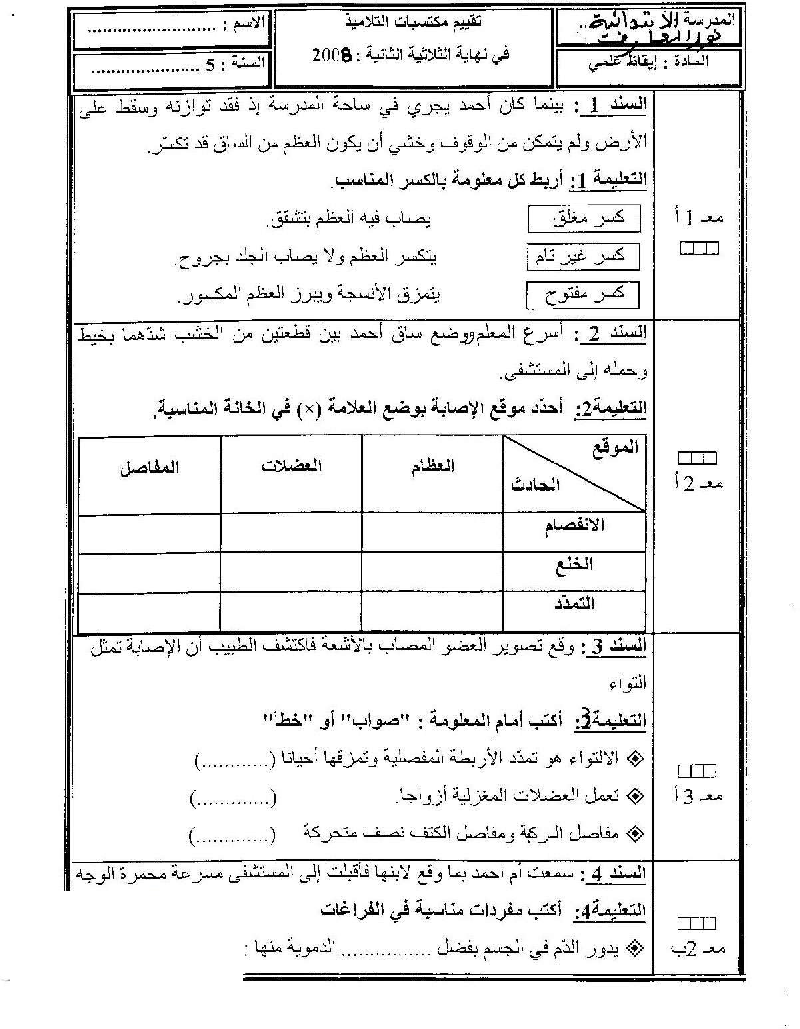 المدرسة الابتدائية
نور المعارف
المادة : إيقاظ علمي
تقييم مكتسبات التلاميذ
في نهاية الثلاثية الثانية : 2008
الاسم : ........................
السنة : 5 ....................
السند 1 : بينما كان أحمد يجري في ساحة المدرسة إذ فقد توازنه وسقط على
الأرض ولم يتمكن من الوقوف وخشي أن يكون العظم من الساق قد تكسر.
التعليمة 1: أربط كل معلومة بالكسر المناسب.
معـ 1 أ
كسر مغلق
يصاب فيه العظم بتشقق.
كسر غير تام
يتكسر العظم ولا يصاب الجلد بجروح.
كسر مفتوح
يتمزق الأنسجة ويبرز العظم المكسور.
السند 2 : أسرع المعلم ووضع ساق أحمد بين قطعتين من الخشب شدّهما بخيط
وحمله إلى المستشفى.
التعليمة2: أحدّد موقع الإصابة بوضع العلامة (×) في الخانة المناسبة.
معـ 2 أ
الموقع
الحادث
العظام
العضلات
المفاصل
الانفصام
الخلع
التمدّد
السند 3 : وقع تصوير العضو المصاب بالأشعة فاكتشف الطبيب أن الإصابة تمثل
التواء
التعليمة3: أكتب أمام المعلومة : "صواب" أو "خطأ"
معـ 3 أ
الالتواء هو تمدّد الأربطة المفصلية وتمزقها أحيانا (............)
تعمل العضلات المغزلية أزواجا. (............)
مفاصل الركبة ومفاصل الكتف نصف متحركة (............)
السند 4 : سمعت أم احمد بما وقع لابنها فأقبلت إلى المستشفى مسرعة محمرة الوجه
التعليمة4: أكتب مفردات مناسبة في الفراغات
معـ 2ب
يدور الدّم في الجسم بفضل ............... الدموية منها :